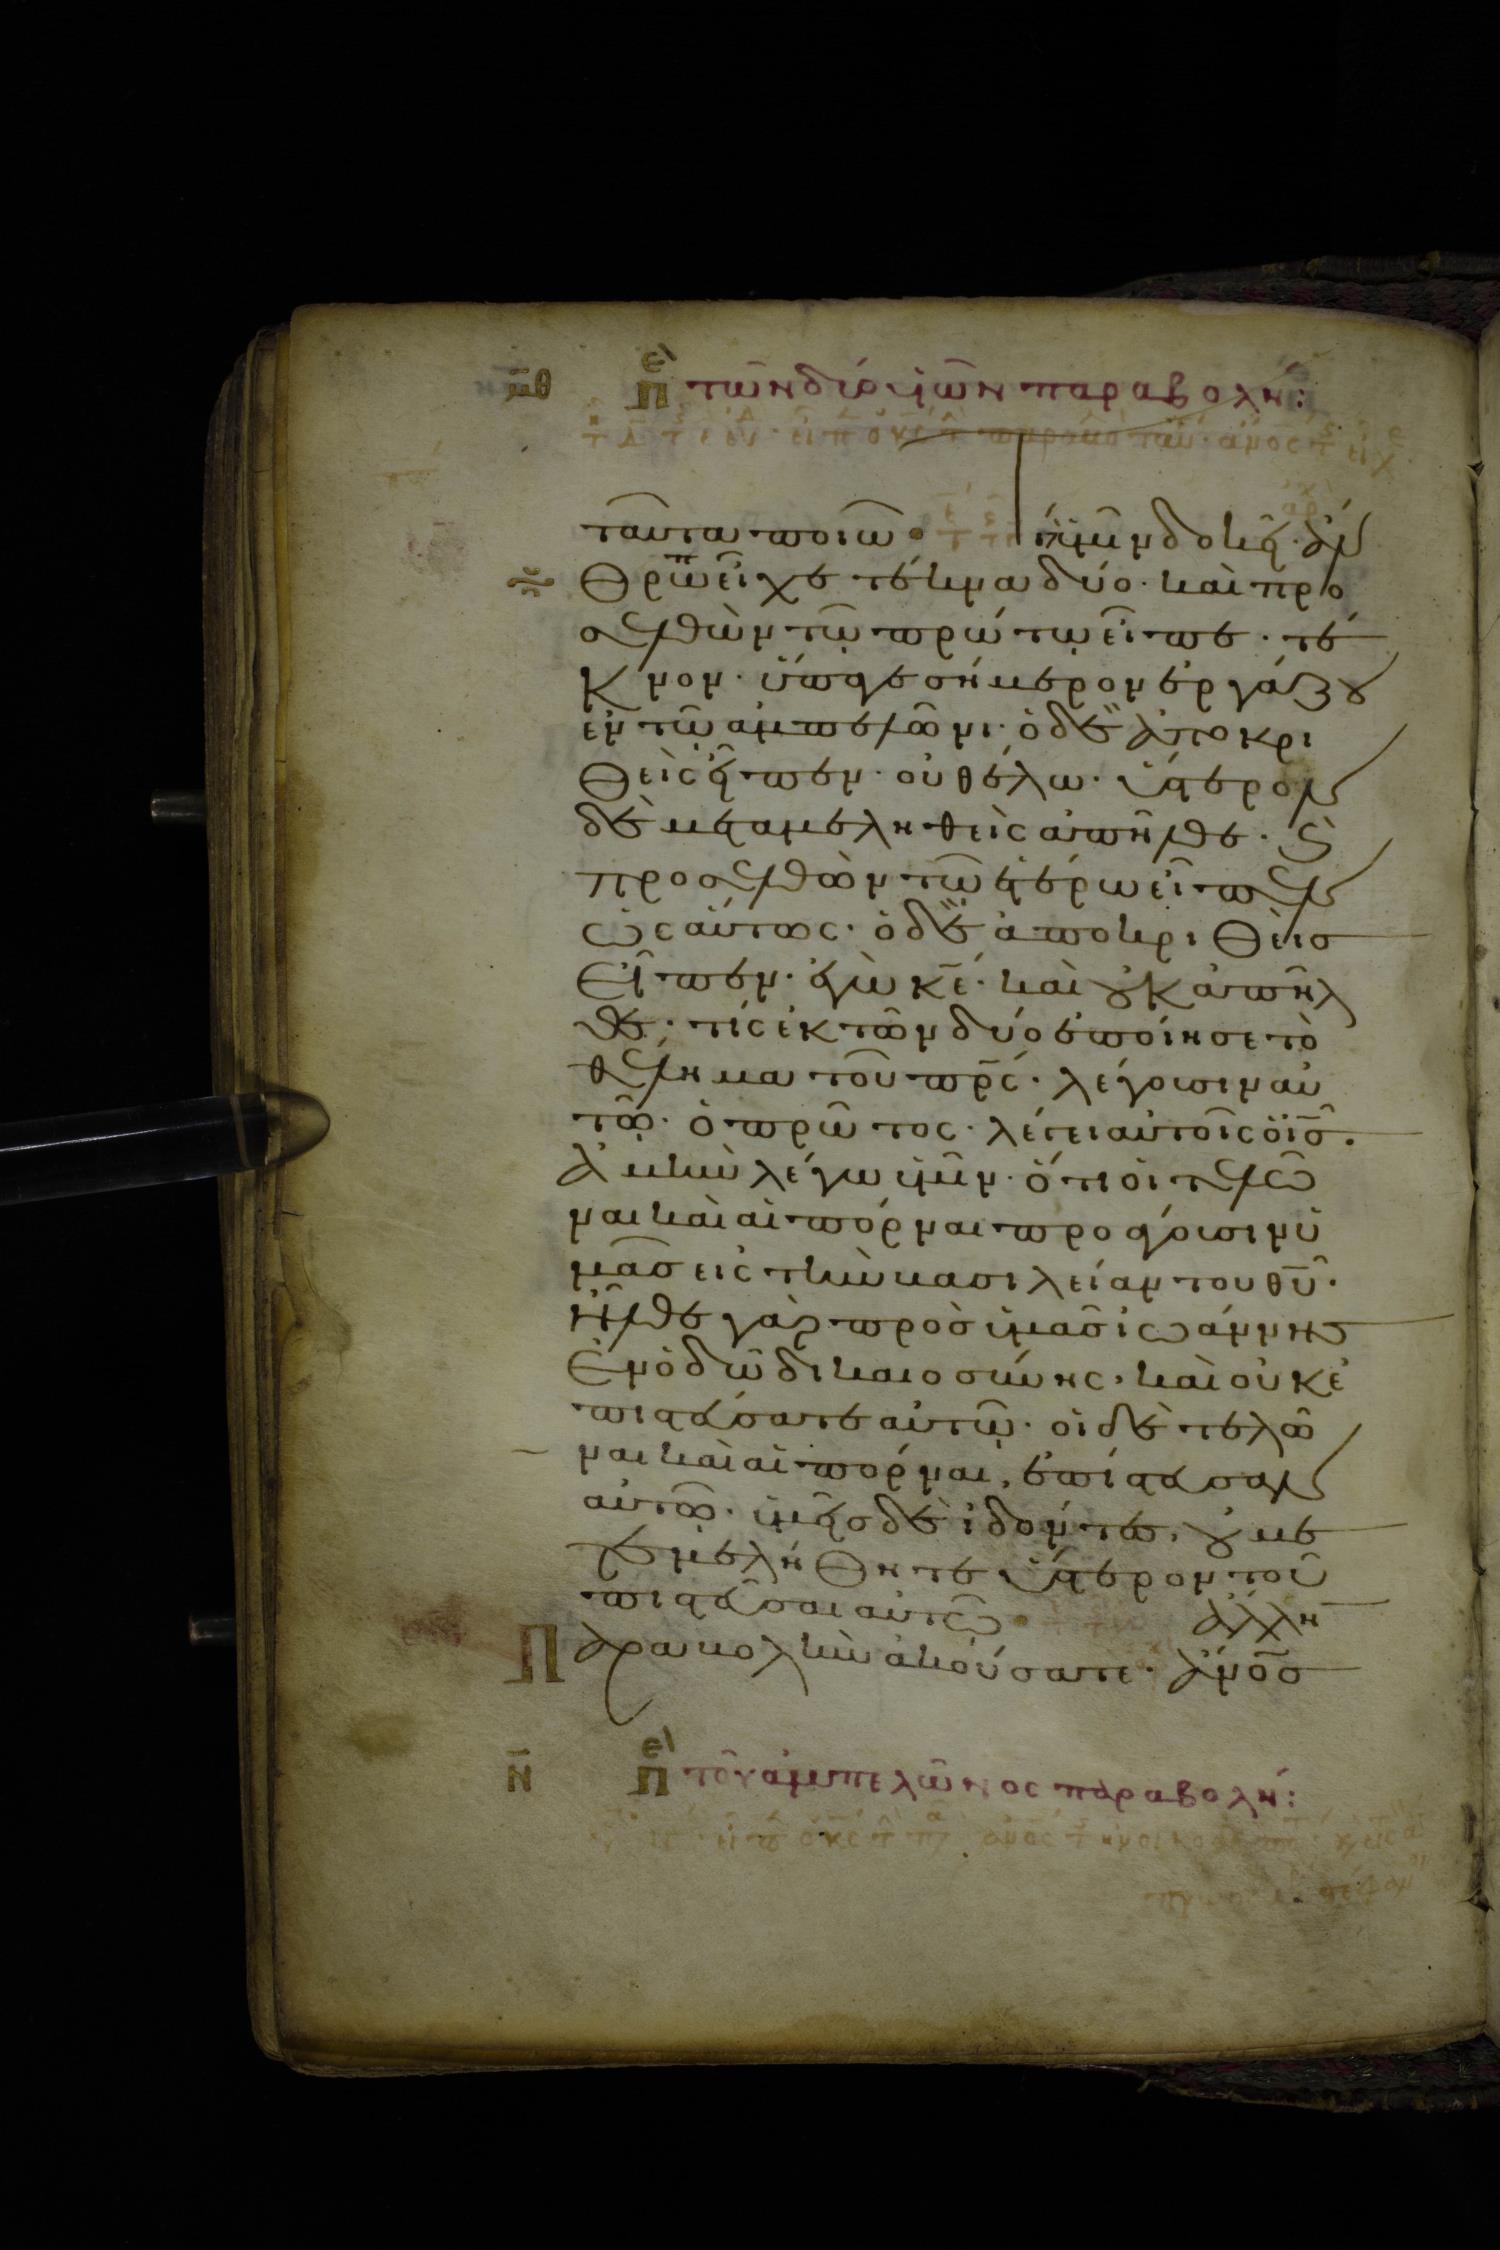 μθ Περὶ τῶν δύο υἱῶν παραβολή:
ταῦτα ποιῶ· τί ὑμῖν δοκεῖ· ἄν
θρωπ εἶχε τέκνα δύο· καὶ προ
σελθὼν τῶ πρώτω εἶπε· τέ
κνον· ὕπαγε σήμερον ἐργάζου
ἐν τῶ ἀμπελῶνι· ὁ δὲ ἀποκρι
θεὶς εἶπεν· οὐ θέλω· ὕστερον
δὲ μεταμεληθεὶς ἀπῆλθε· Ϗ
προσελθὼν τῶ ἑτέρω εἶπεν
ὡσαύτως· ὁ δὲ ἀποκριθεὶσ
εἶπεν· ἐγὼ κ̅ε· καὶ οὐκ ἀπῆλ
θε· τίς ἐκ τῶν δύο ἐποίησε τὸ
θέλημα τοῦ π̅ρ̅ς· λέγουσιν αὐ
τῶ· ὁ πρῶτος· λέγει αὐτοῖς ὁ ι̅σ·
ἀμὴν λέγω ὑμῖν· ὅτι οἱ τελῶ
ναι καὶ αἱ πόρναι προάγουσιν ὑ
μᾶσ εἰς τὴν βασιλείαν του θ̅υ·
ἦλθε γὰρ πρὸσ ὑμᾶσ ἰωάννησ
ἐν ὁδῶ δικαιοσύνης· καὶ οὐκ ἐ
πιστεύσατε αὐτῶ· οἱ δὲ τελῶ
ναι καὶ αἱ πόρναι, ἐπίστευσαν
αὐτῶ· ὑμεῖσ δὲ ἰδόντεσ, οὐ με
τεμελήθητε ὕστερον τοῦ
πιστεῦσαι αὐτῶ· ἄλλην
Παραβολὴν ἀκούσατε· ἄν̅ο̅σ
ν Περὶ τοῦ ἀμπελῶνος παραβολή: